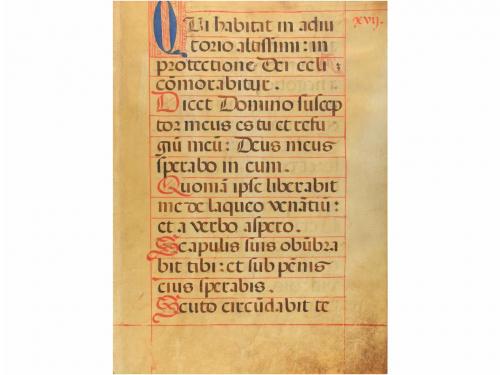 QVi habitat in adiu
xvij.
torio altissimi: in
protectione Dei celi
cōmorabitur.
Dicet Domino suscep
tor meus es tu et refu
giū meū: Deus meus
sperabo in eum.
Quoniā ipse liberabit
me de laqueo venātiū:
et a verbo aspero.
Scapulis suis obūbra
bit tibi: et sub pēnis
eius sperabis.
Scuto circūdabit te